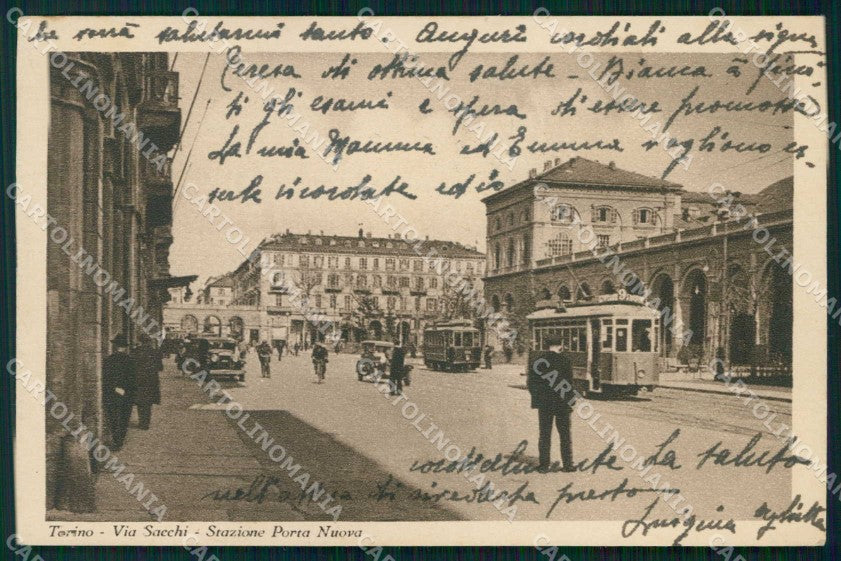 la verrà salutarmi tanto. Auguri cordiali alla signa
Teresa di ottima salute - Bianca à fini
ti gli esami e spera di essere promossa
La mia Mamma ed Emma vogliono es-
serle ricordate ed io
cordialmente La saluto
nell'attesa di rivederla presto -
Luigina
Torino - Via Sacchi - Stazione Porta Nuova
CARTOLINOMANIA.COM